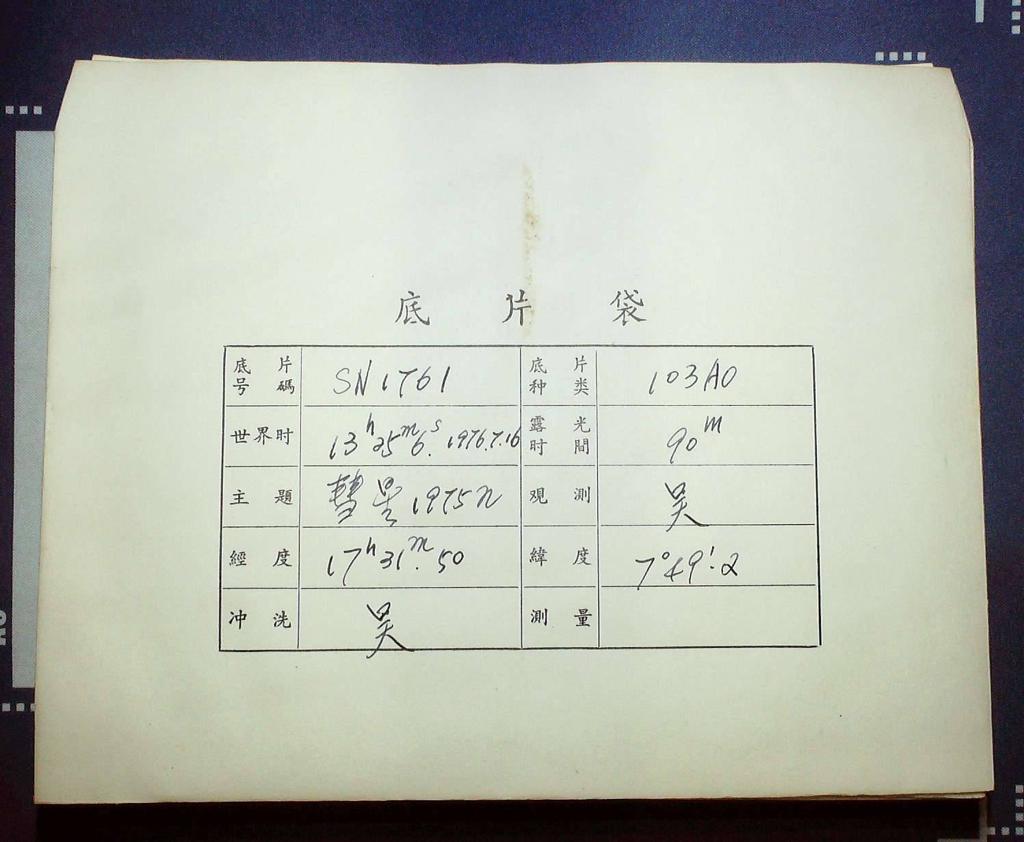 底片袋
底片号碼 SN1761 底片种类 103AO
世界时 13ʰ35ᵐ6ˢ. 1976.7.16 露光时間 90ᵐ
主題 彗星1975n 观測 吴
經度 17ʰ31ᵐ.50 緯度 7°49′.2
冲洗 吴 測量